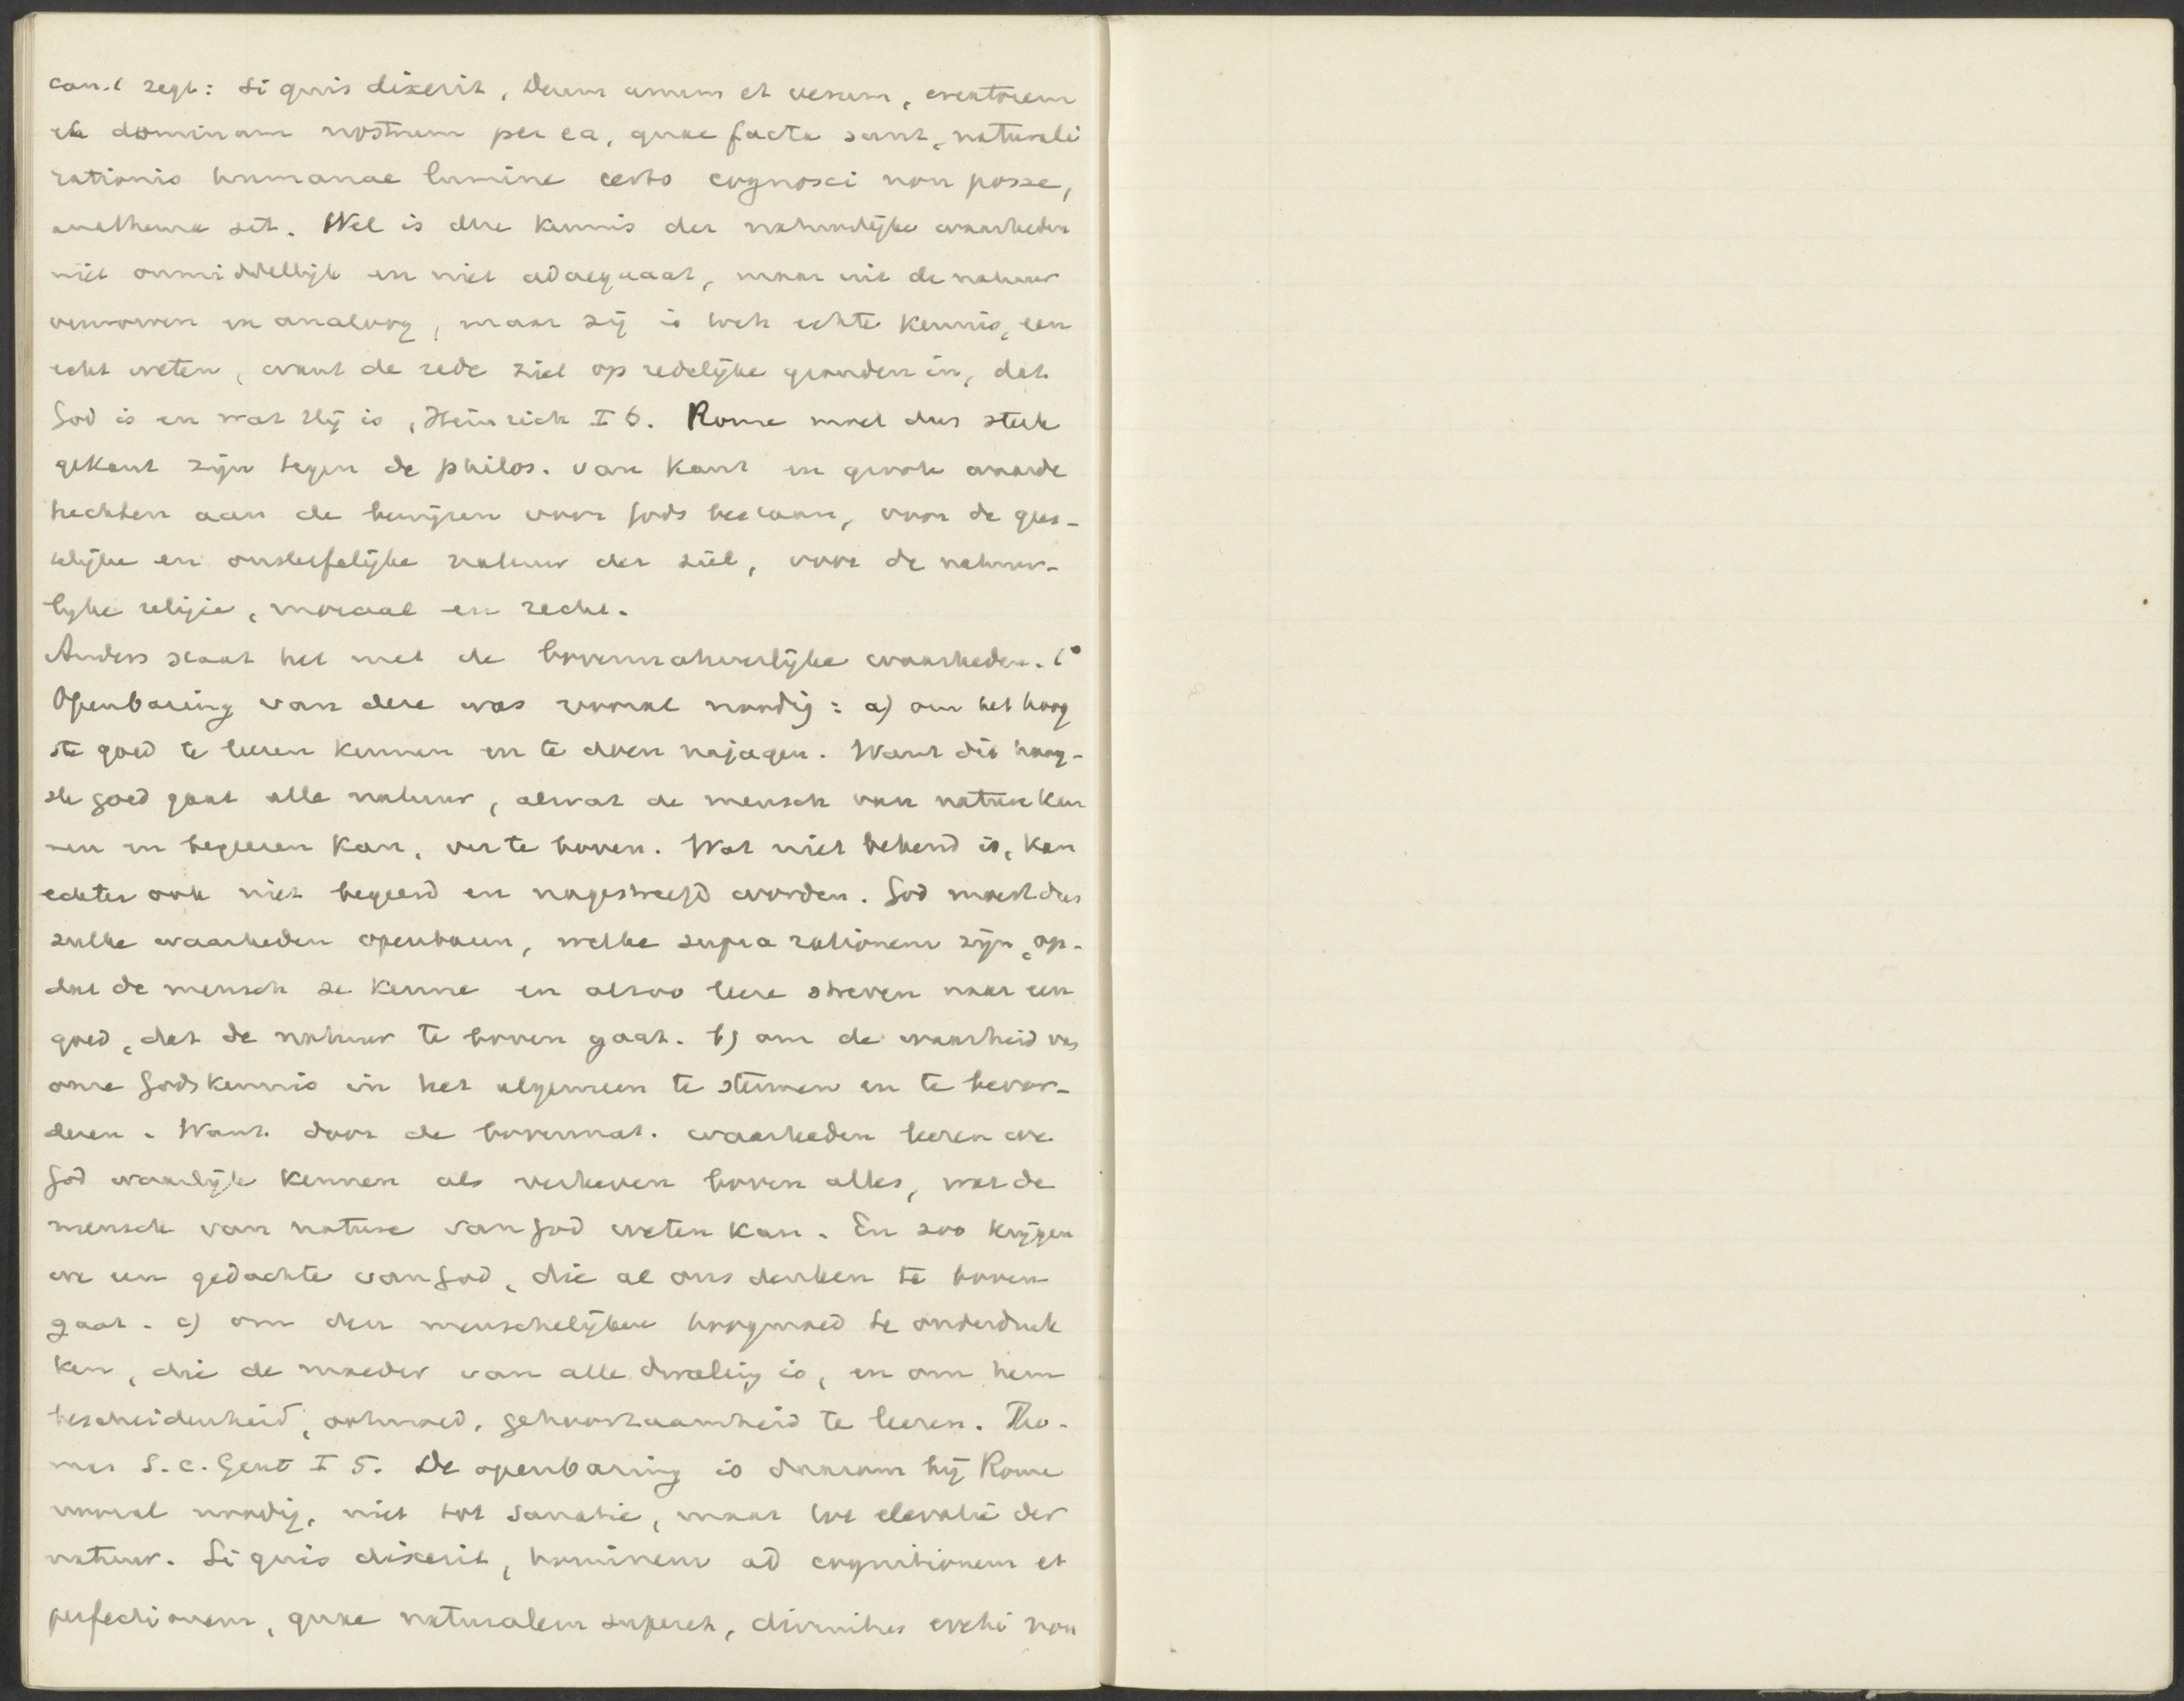 can. 1 zegt: Si quis dixerit, Deum unum et verum, creatorem
et dominum nostrum per ea, quae facta sunt, naturali
rationis humanae lumine certo cognosci non posse,
anathema sit. Wel is deze kennis der natuurlijke waarheden
niet onmiddellijk en niet adaequaat, maar uit de natuur
verworven en analoog, maar zij is toch echte kennis, een
echt weten, want de rede ziet op redelijke gronden in, dat
God is en wat Hij is, Heinrich I 6. Rome moet dus sterk
gekant zijn tegen de philos. van Kant en groote waarde
hechten aan de bewijzen voor Gods bestaan, voor de gees-
telijke en onsterfelijke natuur der ziel, voor de natuur-
lijke religie, moraal en recht.
Anders staat het met de bovennatuurlijke waarheden. 1°
Openbaring van deze was vooral noodig: a) om het hoog
ste goed te leeren kennen en te doen najagen. Want dit hoog-
ste goed gaat alle natuur, alwat de mensch van nature ken
nen en begeeren kan, ver te boven. Wat niet bekend is, kan
echter ook niet begeerd en nagestreefd worden. God moest dus
zulke waarheden openbaren, welke supra rationem zijn, op-
dat de mensch ze kenne en alzoo leere streven naar een
goed, dat de natuur te boven gaat. b) om de waarheid van
onze Godskennis in het algemeen te steunen en te bevor-
deren. Want door de bovennat. waarheden leeren we
God waarlijk kennen als verheven boven alles, wat de
mensch van nature van God weten kan. En zoo krijgen
we een gedachte van God, die al ons denken te boven
gaat. c) om den menschelijken hoogmoed te onderdruk
ken, die de moeder van alle dwaling is, en om hem
bescheidenheid, ootmoed, gehoorzaamheid te leeren. Tho-
mas S. c. Gent I 5. De openbaring is daarom bij Rome
vooral noodig, niet tot sanatie, maar tot elevatie der
natuur. Si quis dixerit, hominem ad cognitionem et
perfectionem, quae naturalem superet, divinitus evehi non